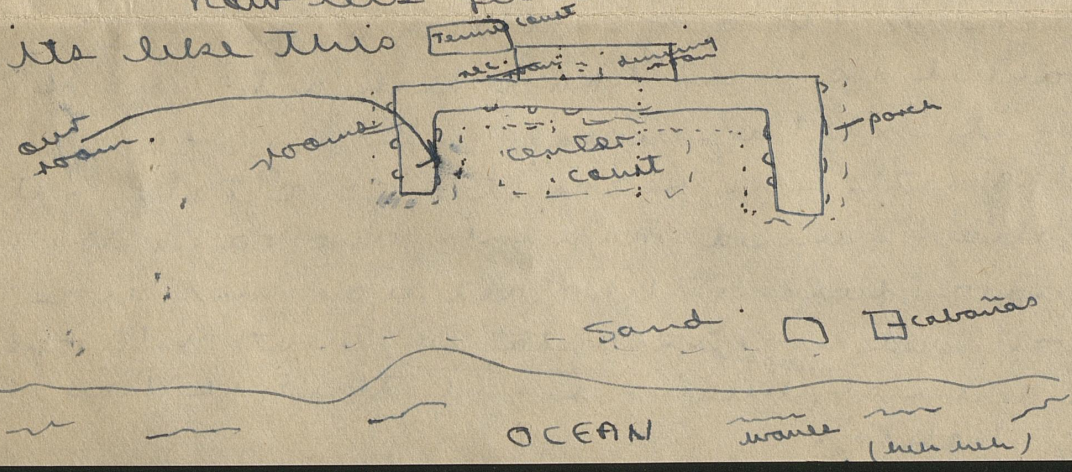 its like this
Tennis court
rec. room = ; dining room
our room.
rooms
porch
center court
Sand
cabañas
OCEAN
waves
(heh heh)